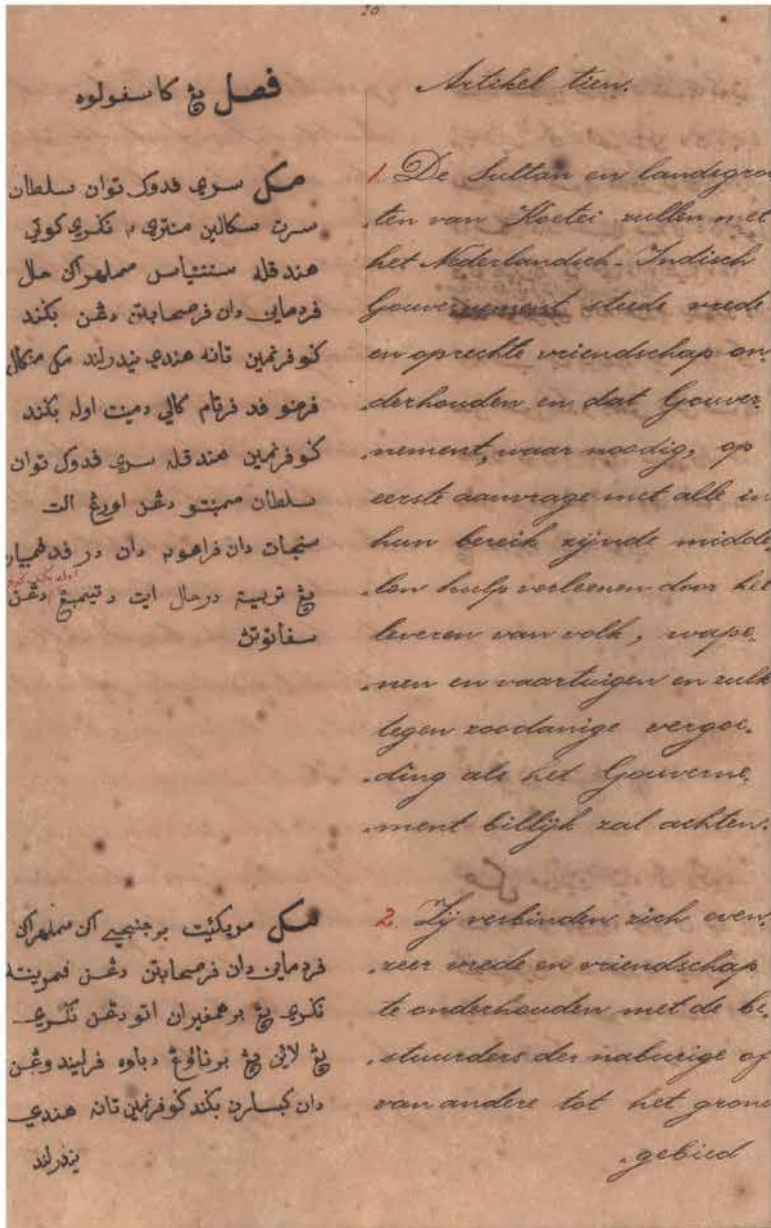 20
فصل يڠ كاسفولوه
مك سري فدوك توان سلطان
سرت سكالين منتري٢ نكري كوتي
هندقله سنتياس مملهراكن حال
فردماين دان فرصحابتن دڠن بكند
كوفرنمين تانه هندي نيدرلند مك
فد فرتام كالي دمينت اوله بكند
كوفرنمين هندقله سري فدوك توان
سلطان ممبنتو دڠن اورڠ الت
سنجات دان فراهو٢ دان
يڠ درحال ايت دڠن
سفاتوتن
مك مريكئيت برجنجي اكن مملهراكن
فردماين دان فرصحابتن دڠن فمرينته
نكري يڠ برهمفيران اتو دڠن نكري٢
يڠ لاين يڠ برناوڠ دباوه فرليندوڠن
دان كبسارن بكند كوفرنمين تانه هندي
نيدرلند
Artikel tien.
1. De Sultan en landsgroo
ten van Koetei zullen met
het Nederlandsch-Indisch
Gouvernement steeds vrede
en oprechte vriendschap on,
,derhouden en dat Gouver,
,nement, waar noodig, op
eerste aanvrage met alle in
hun bereik zijnde midde,
,len hulp verleenen door het
leveren van volk, wape,
,nen en vaartuigen en zulk
tegen zoodanige vergoe,
,ding als het Gouverne,
,ment billijk zal achten.
2. Zij verbinden zich even,
,zeer vrede en vriendschap
te onderhouden met de be,
,stuurders der naburige of
van andere tot het grond
,gebied